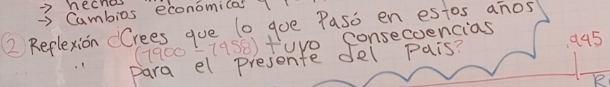 → hechos
→ Cambios económicos y
② Reflexión ¿Crees que lo que Pasó en estos años
(1900 - 1958) tuvo consecuencias
para el Presente del País?
.945
R